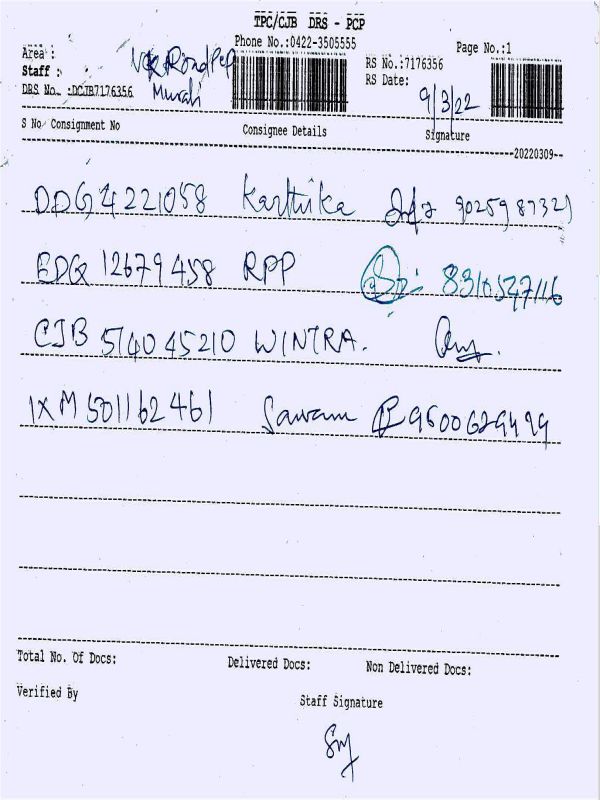 TPC/CJB DRS - PCP
Phone No.:0422-3505555
Page No.:1
Area :
Staff : Murali
DRS No. :DCJB7176356
RS No.:7176356
RS Date: 9/3/22
S No Consignment No Consignee Details Signature
--20220309--
DDG 4221058 Karthika
EDQ 12679458 RPP 8310527116
CJB 514045210 WINTRA.
IXM 501162461 9600629499
Total No. Of Docs: Delivered Docs: Non Delivered Docs:
Verified By Staff Signature